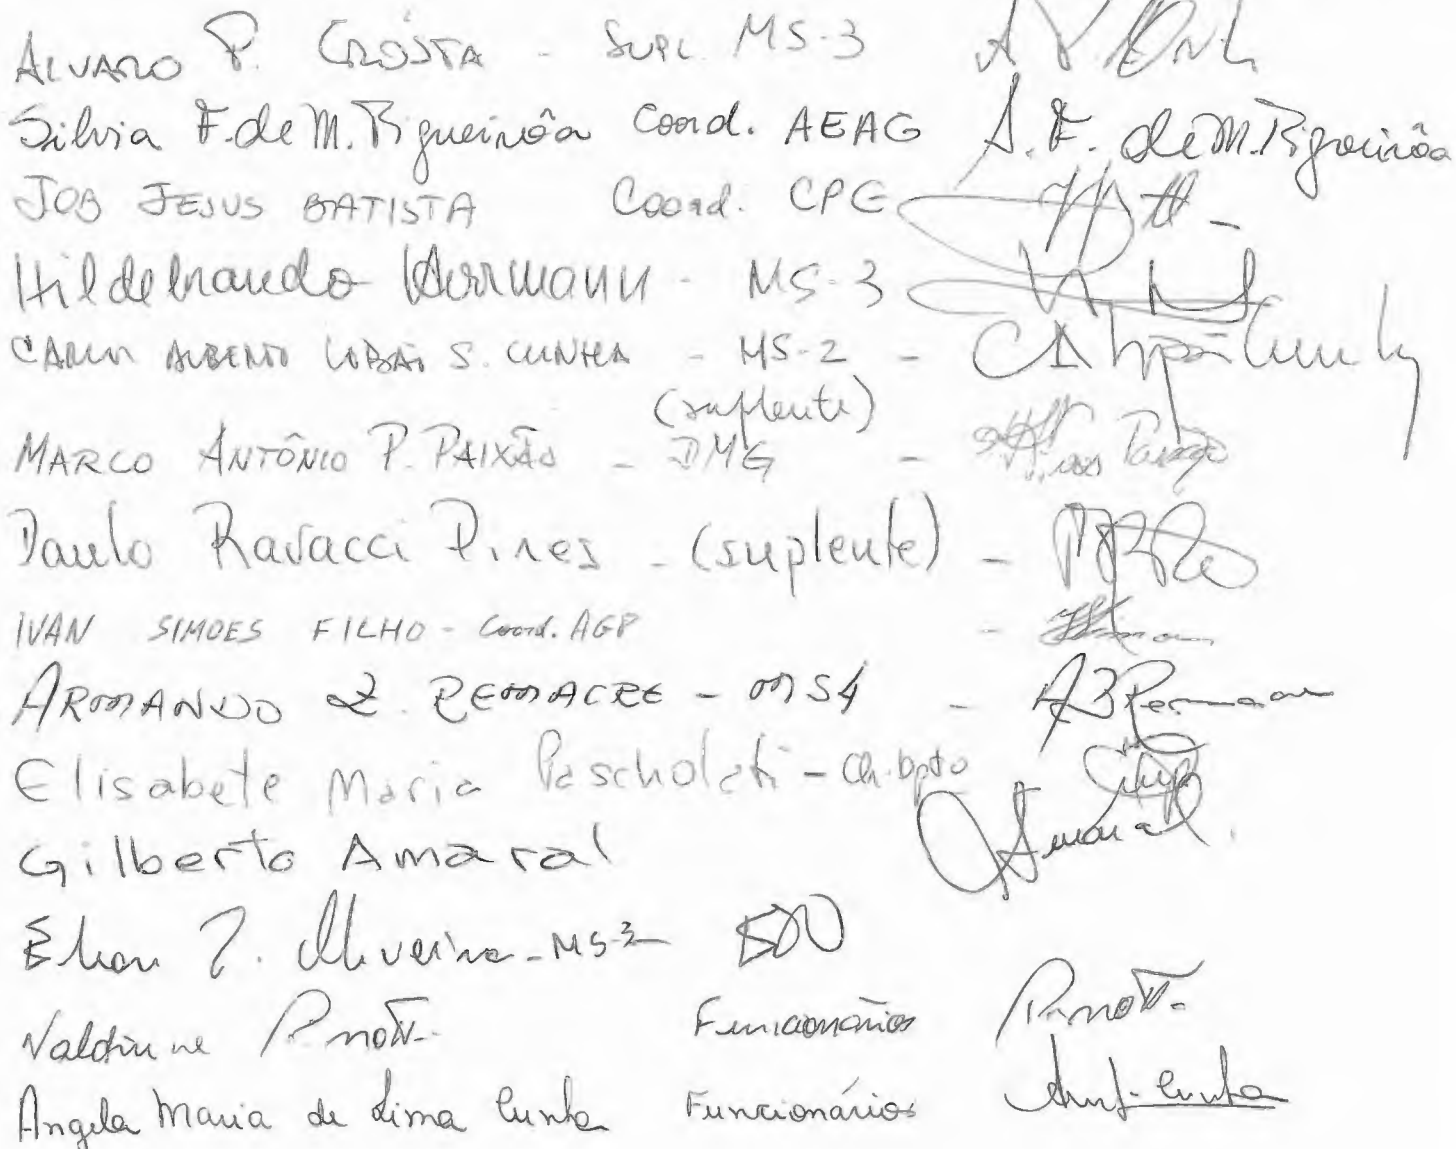 ALVARO P. CRÓSTA - SUPL. MS-3
Silvia F. de M. Figueirôa Coord. AEAG S. F. de M. Figueirôa
JOB JESUS BATISTA Coord. CPG
Hildebrando Herrmann - MS-3
CARLOS ALBERTO LOBÃO S. CUNHA - MS-2 -
(suplente)
MARCO ANTÔNIO P. PAIXÃO - DMG -
Paulo Ravacci Pires - (suplente) -
IVAN SIMOES FILHO - Coord. AGP -
ARMANDO Z. REMACRE - MS4 -
Elisabete Maria Pascholati - Ch. Dpto
Gilberto Amaral Amaral.
Elson P. Oliveira - MS-3
Valdirene Pinotti Funcionários Pinotti
Angela Maria de Lima Cunha Funcionários Cunha